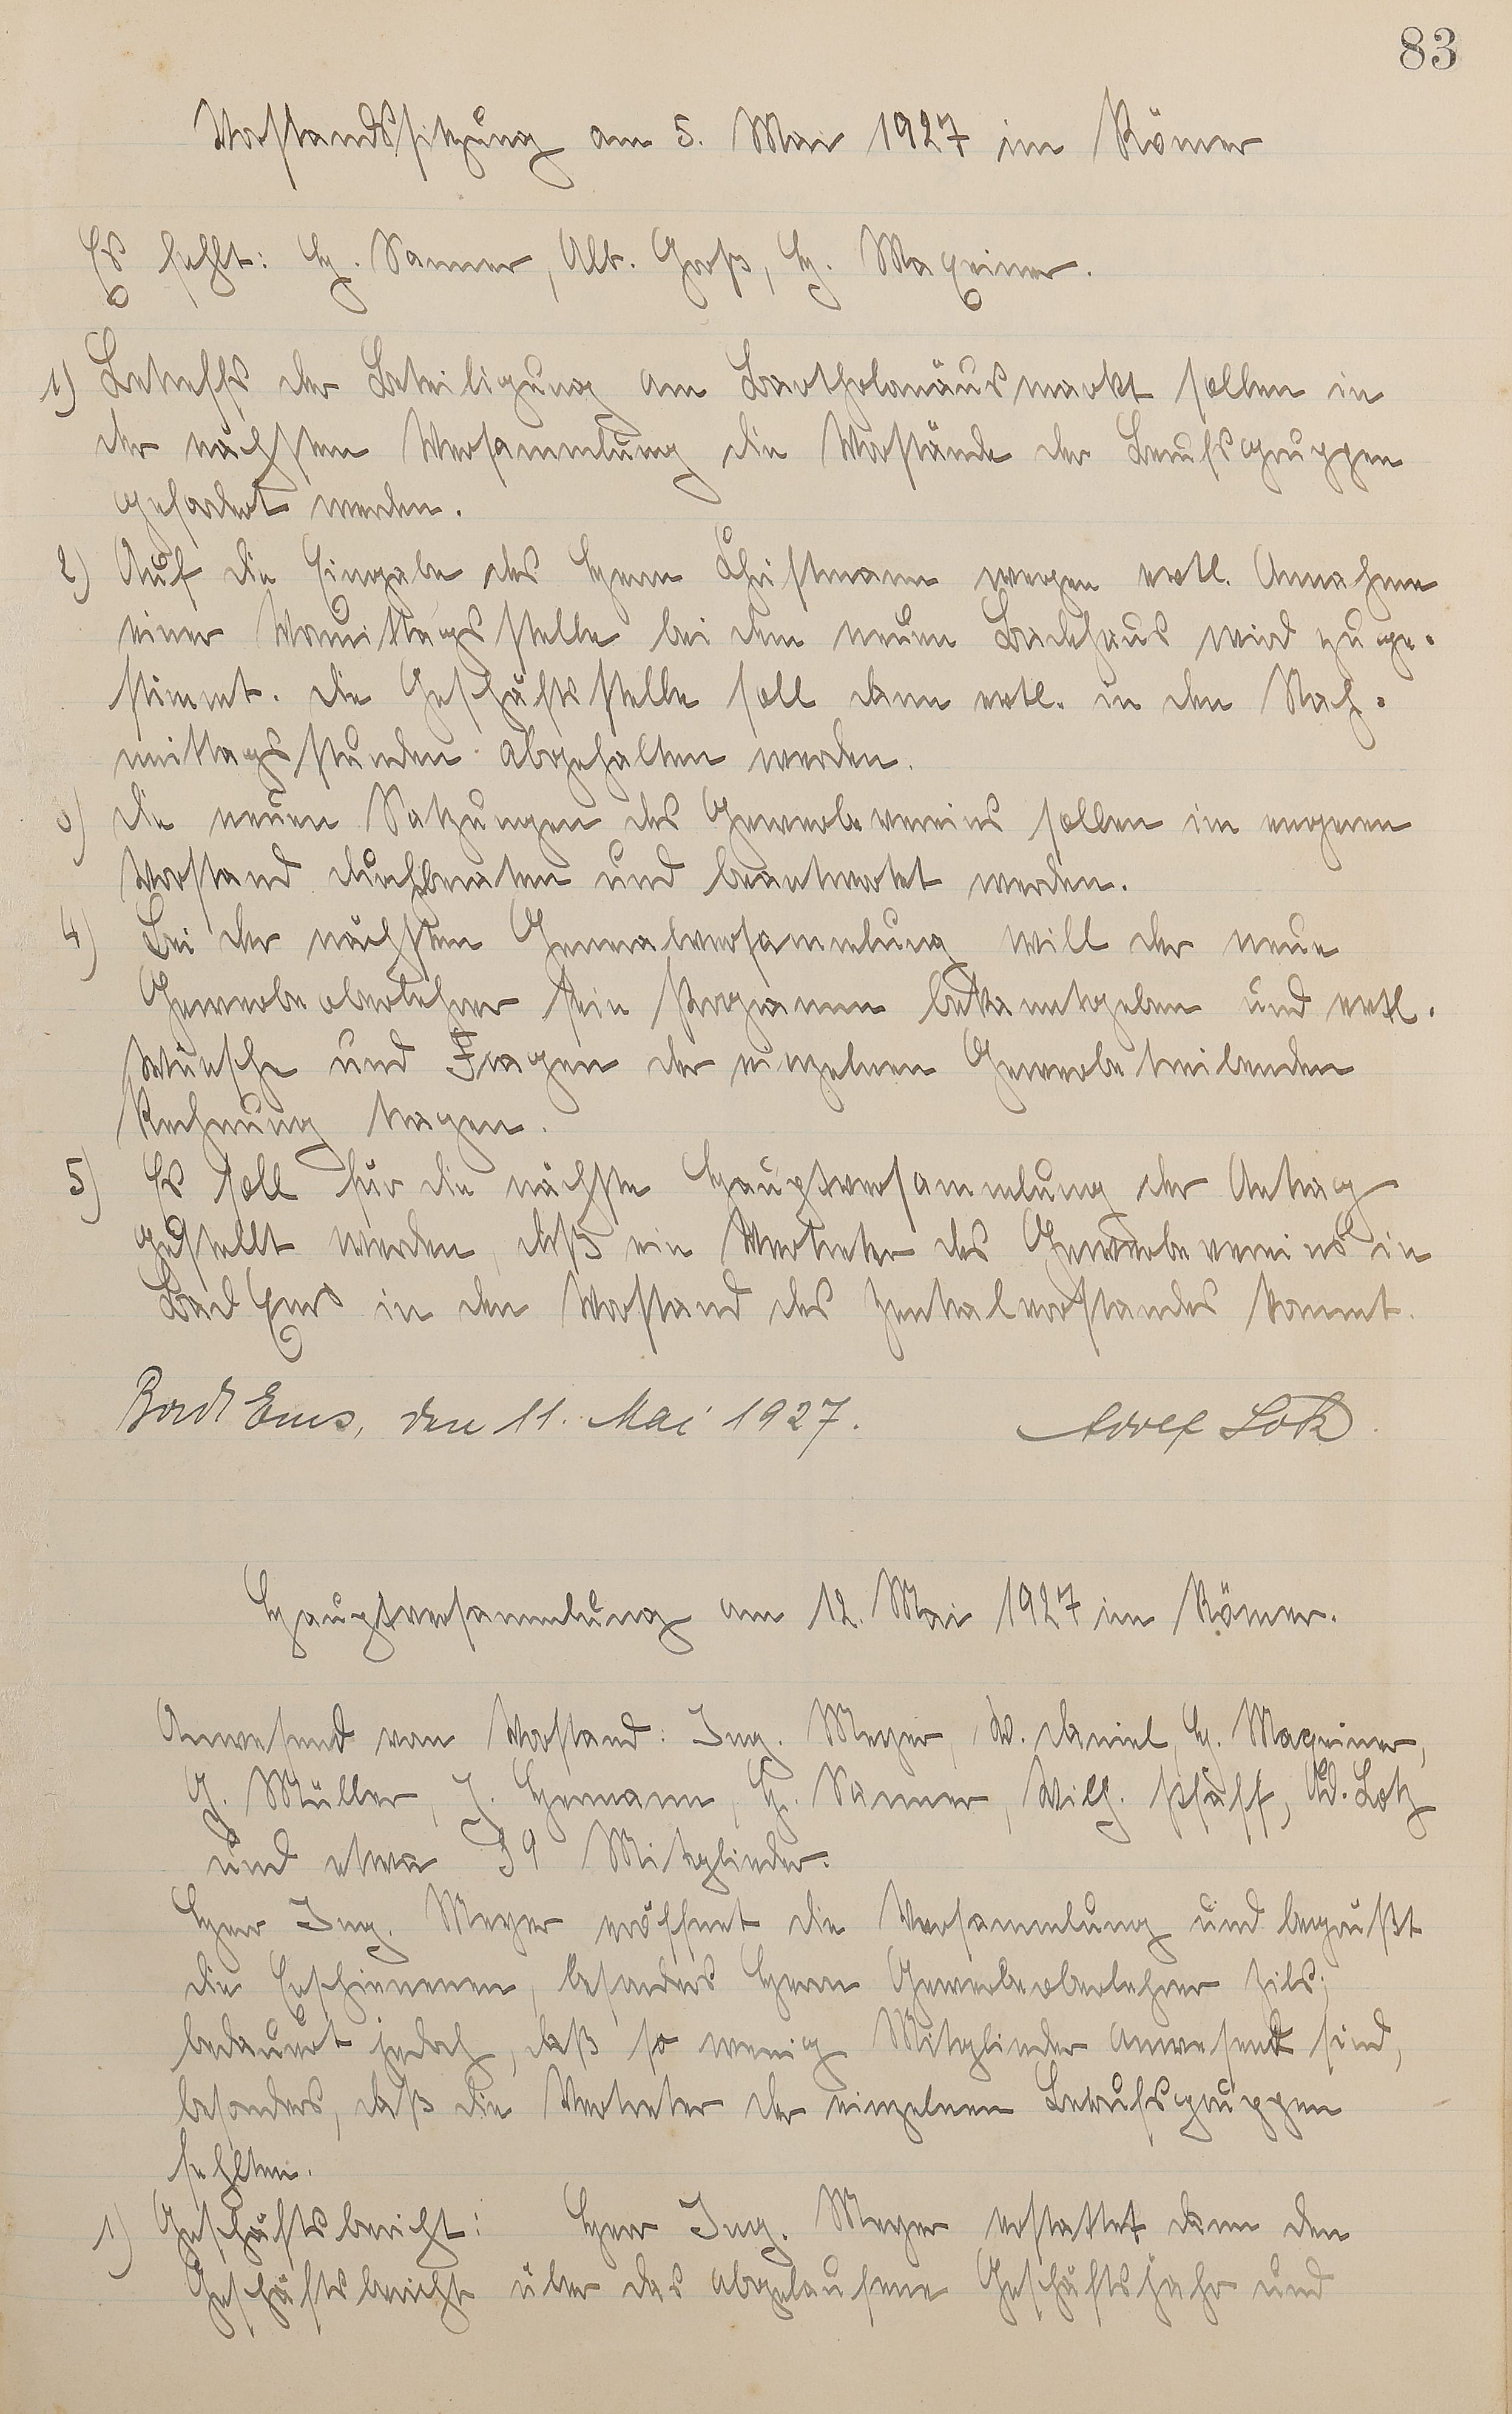 83
Vorstandssitzung am 5. Mai 1927 im Römer
Es fehlt: H. Sanner, Alb. Groß, H. Maxeiner.
1) Betreffs der Beteiligung am Bartholomäusmarkt sollen in
der nächsten Versammlung die Vorstände der Berufsgruppen
gefordert werden.
2) Auf die Eingabe des Herrn Christmann wegen evtl. Annahme
einer Vormittagsstelle bei dem neuen Badehaus wird zuge-
stimmt. Die Geschäftsstelle soll dann evtl. in den Nach-
mittagsstunden abgehalten werden.
3) Die neuen Satzungen des Gewerbevereins sollen im engeren
Vorstand durchberaten und beantwortet werden.
4) Bei der nächsten Generalversammlung will der neue
Gewerbeoberlehrer sein Programm bekanntgeben und evtl.
Wünsche und Fragen der einzelnen Gewerbetreibenden
Rechnung tragen.
5) Es soll für die nächste Hauptversammlung der Antrag
gestellt werden, daß ein Vertreter des Gewerbevereins in
Bad Ems in den Vorstand des Zentralvorstandes kommt.
Bad Ems, den 11. Mai 1927. Adolf Lotz
Hauptversammlung am 12. Mai 1927 im Römer.
Anwesend vom Vorstand: Ing. Meyer, W. Daniel, H. Maxeiner,
G. Müller, J. Hermann, H. Sanner, Wilh. Pfaff, Ad. Lotz
und etwa 39 Mitglieder.
Herr Ing. Meyer eröffnet die Versammlung und begrüßt
die Erschienenen, besonders Herrn Gewerbeoberlehrer Zils;
bedauert jedoch, daß so wenig Mitglieder anwesend sind,
besonders, daß die Vertreter der einzelnen Berufsgruppen
fehlten.
1) Geschäftsbericht: Herr Ing. Meyer erstattet dann den
Geschäftsbericht über das abgelaufene Geschäftsjahr und